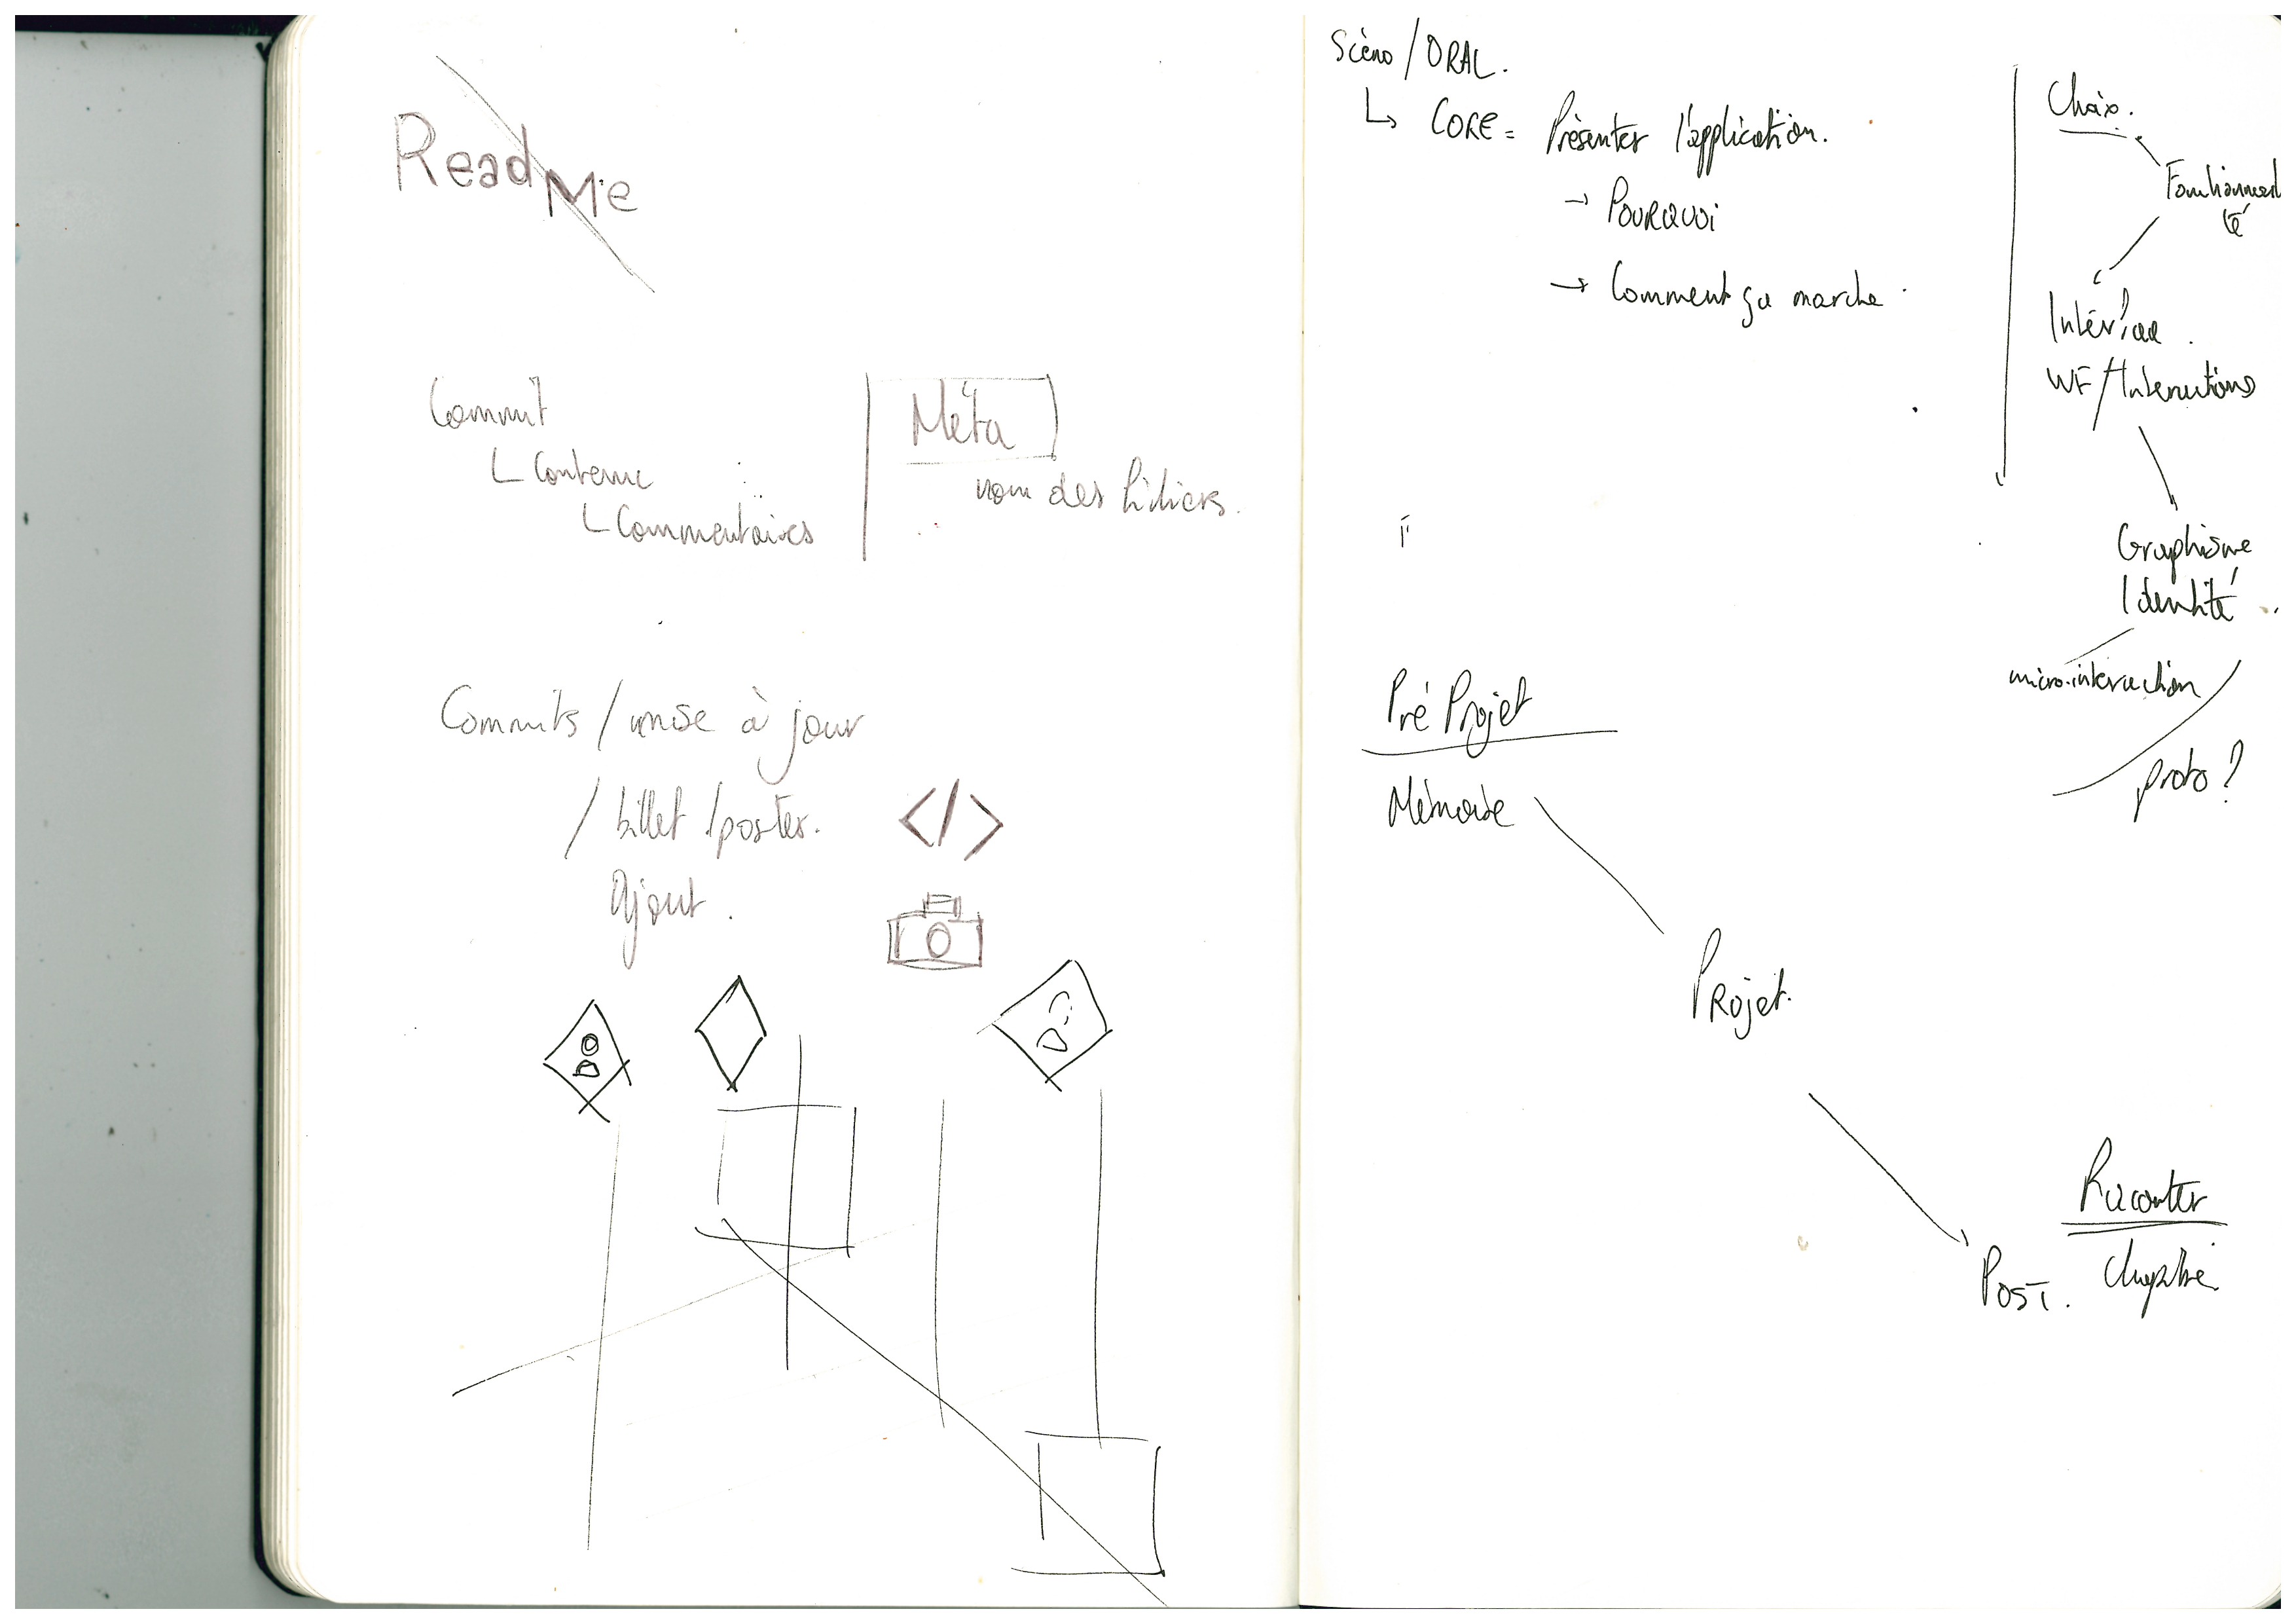 Read Me
Commit
Contenu
Commentaires
Méta
nom des fichiers.
Commits / mise à jour
/ billet / poster.
Ajout.
</>
Scéno / ORAL.
CORE = Présenter l'application.
→ POURQUOI
→ Comment ça marche.
Choix.
Fonctionnali
té
Interface.
WF / Interactions
Graphisme
Identité
micro-interaction
proto ?
Pré Projet
Mémoire
PROJET.
POST.
Raconter
Chapitre